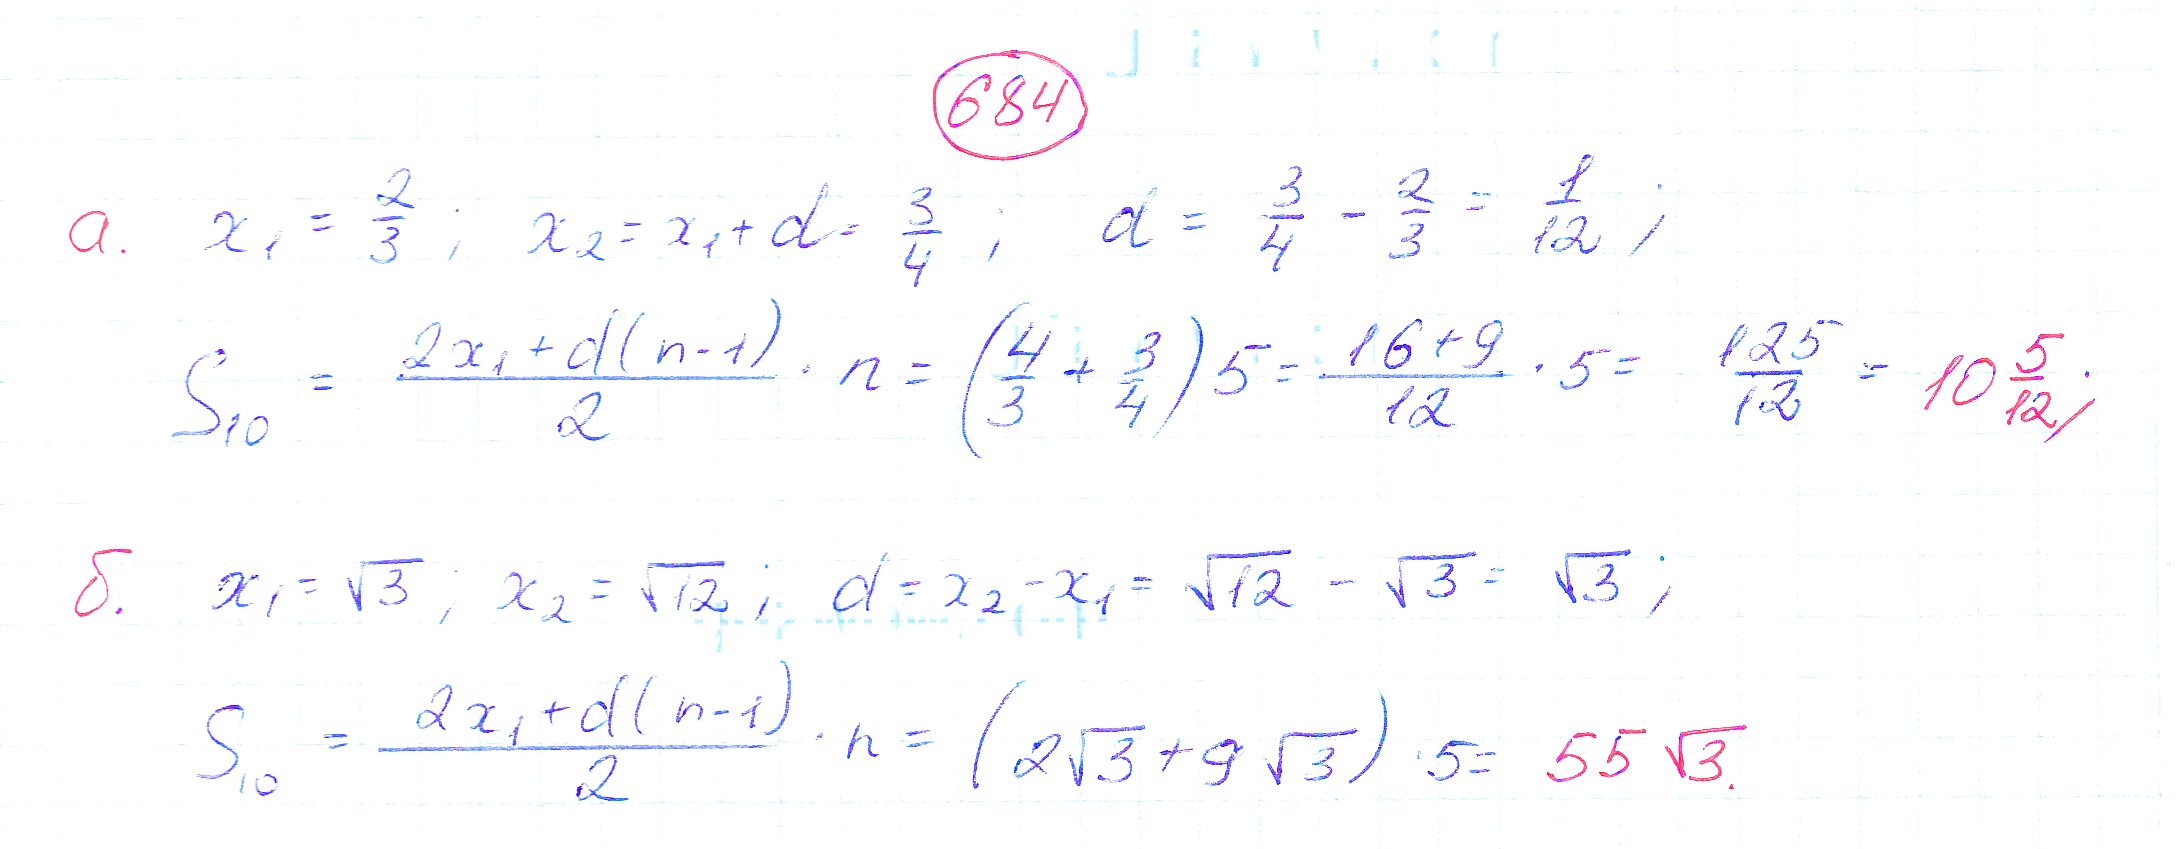 684
а. x₁ = 2/3; x₂ = x₁ + d = 3/4; d = 3/4 - 2/3 = 1/12;
S₁₀ = (2x₁ + d(n-1))/2 · n = (4/3 + 3/4) 5 = (16+9)/12 · 5 = 125/12 = 10 5/12;
б. x₁ = √3; x₂ = √12; d = x₂ - x₁ = √12 - √3 = √3;
S₁₀ = (2x₁ + d(n-1))/2 · n = (2√3 + 9√3) · 5 = 55√3.